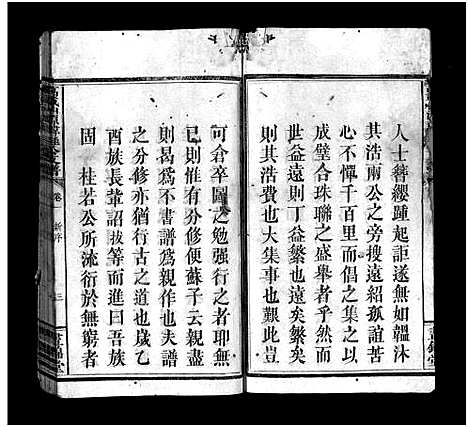 人士簪纓踵起詎遂無如韞沐
其浩兩公之旁搜遠紹孤詣苦
心不憚千百里而倡之集之以
成璧合珠聯之盛舉者乎然而
世益遠則丁益繁也遠矣繁矣
則其浩費也大集事也艱此豈
可倉卒圖之勉強行之者耶無
已則惟有分修便蘇子云親盡
則曷爲不書譜爲親作也夫譜
之分修亦猶行古之道也歲乙
酉族長輩詔拔等而進曰吾族
固 桂若公所流衍於無窮者
卷 新序 三